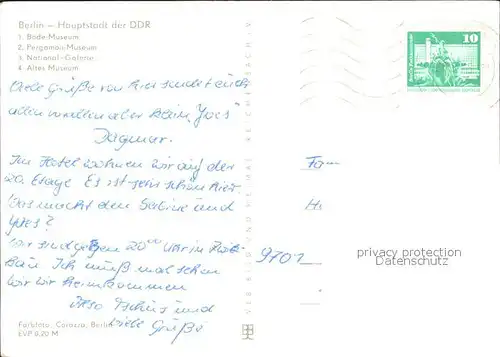 Berlin – Hauptstadt der DDR
1. Bode-Museum
2. Pergamon-Museum
3. National-Galerie
4. Altes Museum
Viele Grüße von hier sendet euch
allen vor allem aber
Dagmar.
Im Hotel wohnen wir auf der
20. Etage Es ist sehr schön hier
Was macht den Sabine und
Yves?
Wir sind gegen 20°° Uhr in
Ich muß mal schon
wir heimkommen
Also Tschüs und
Viele Grüße
Farbfoto: Corazza, Berlin
EVP 0,20 M
10
Fam
9701
privacy protection
Datenschutz